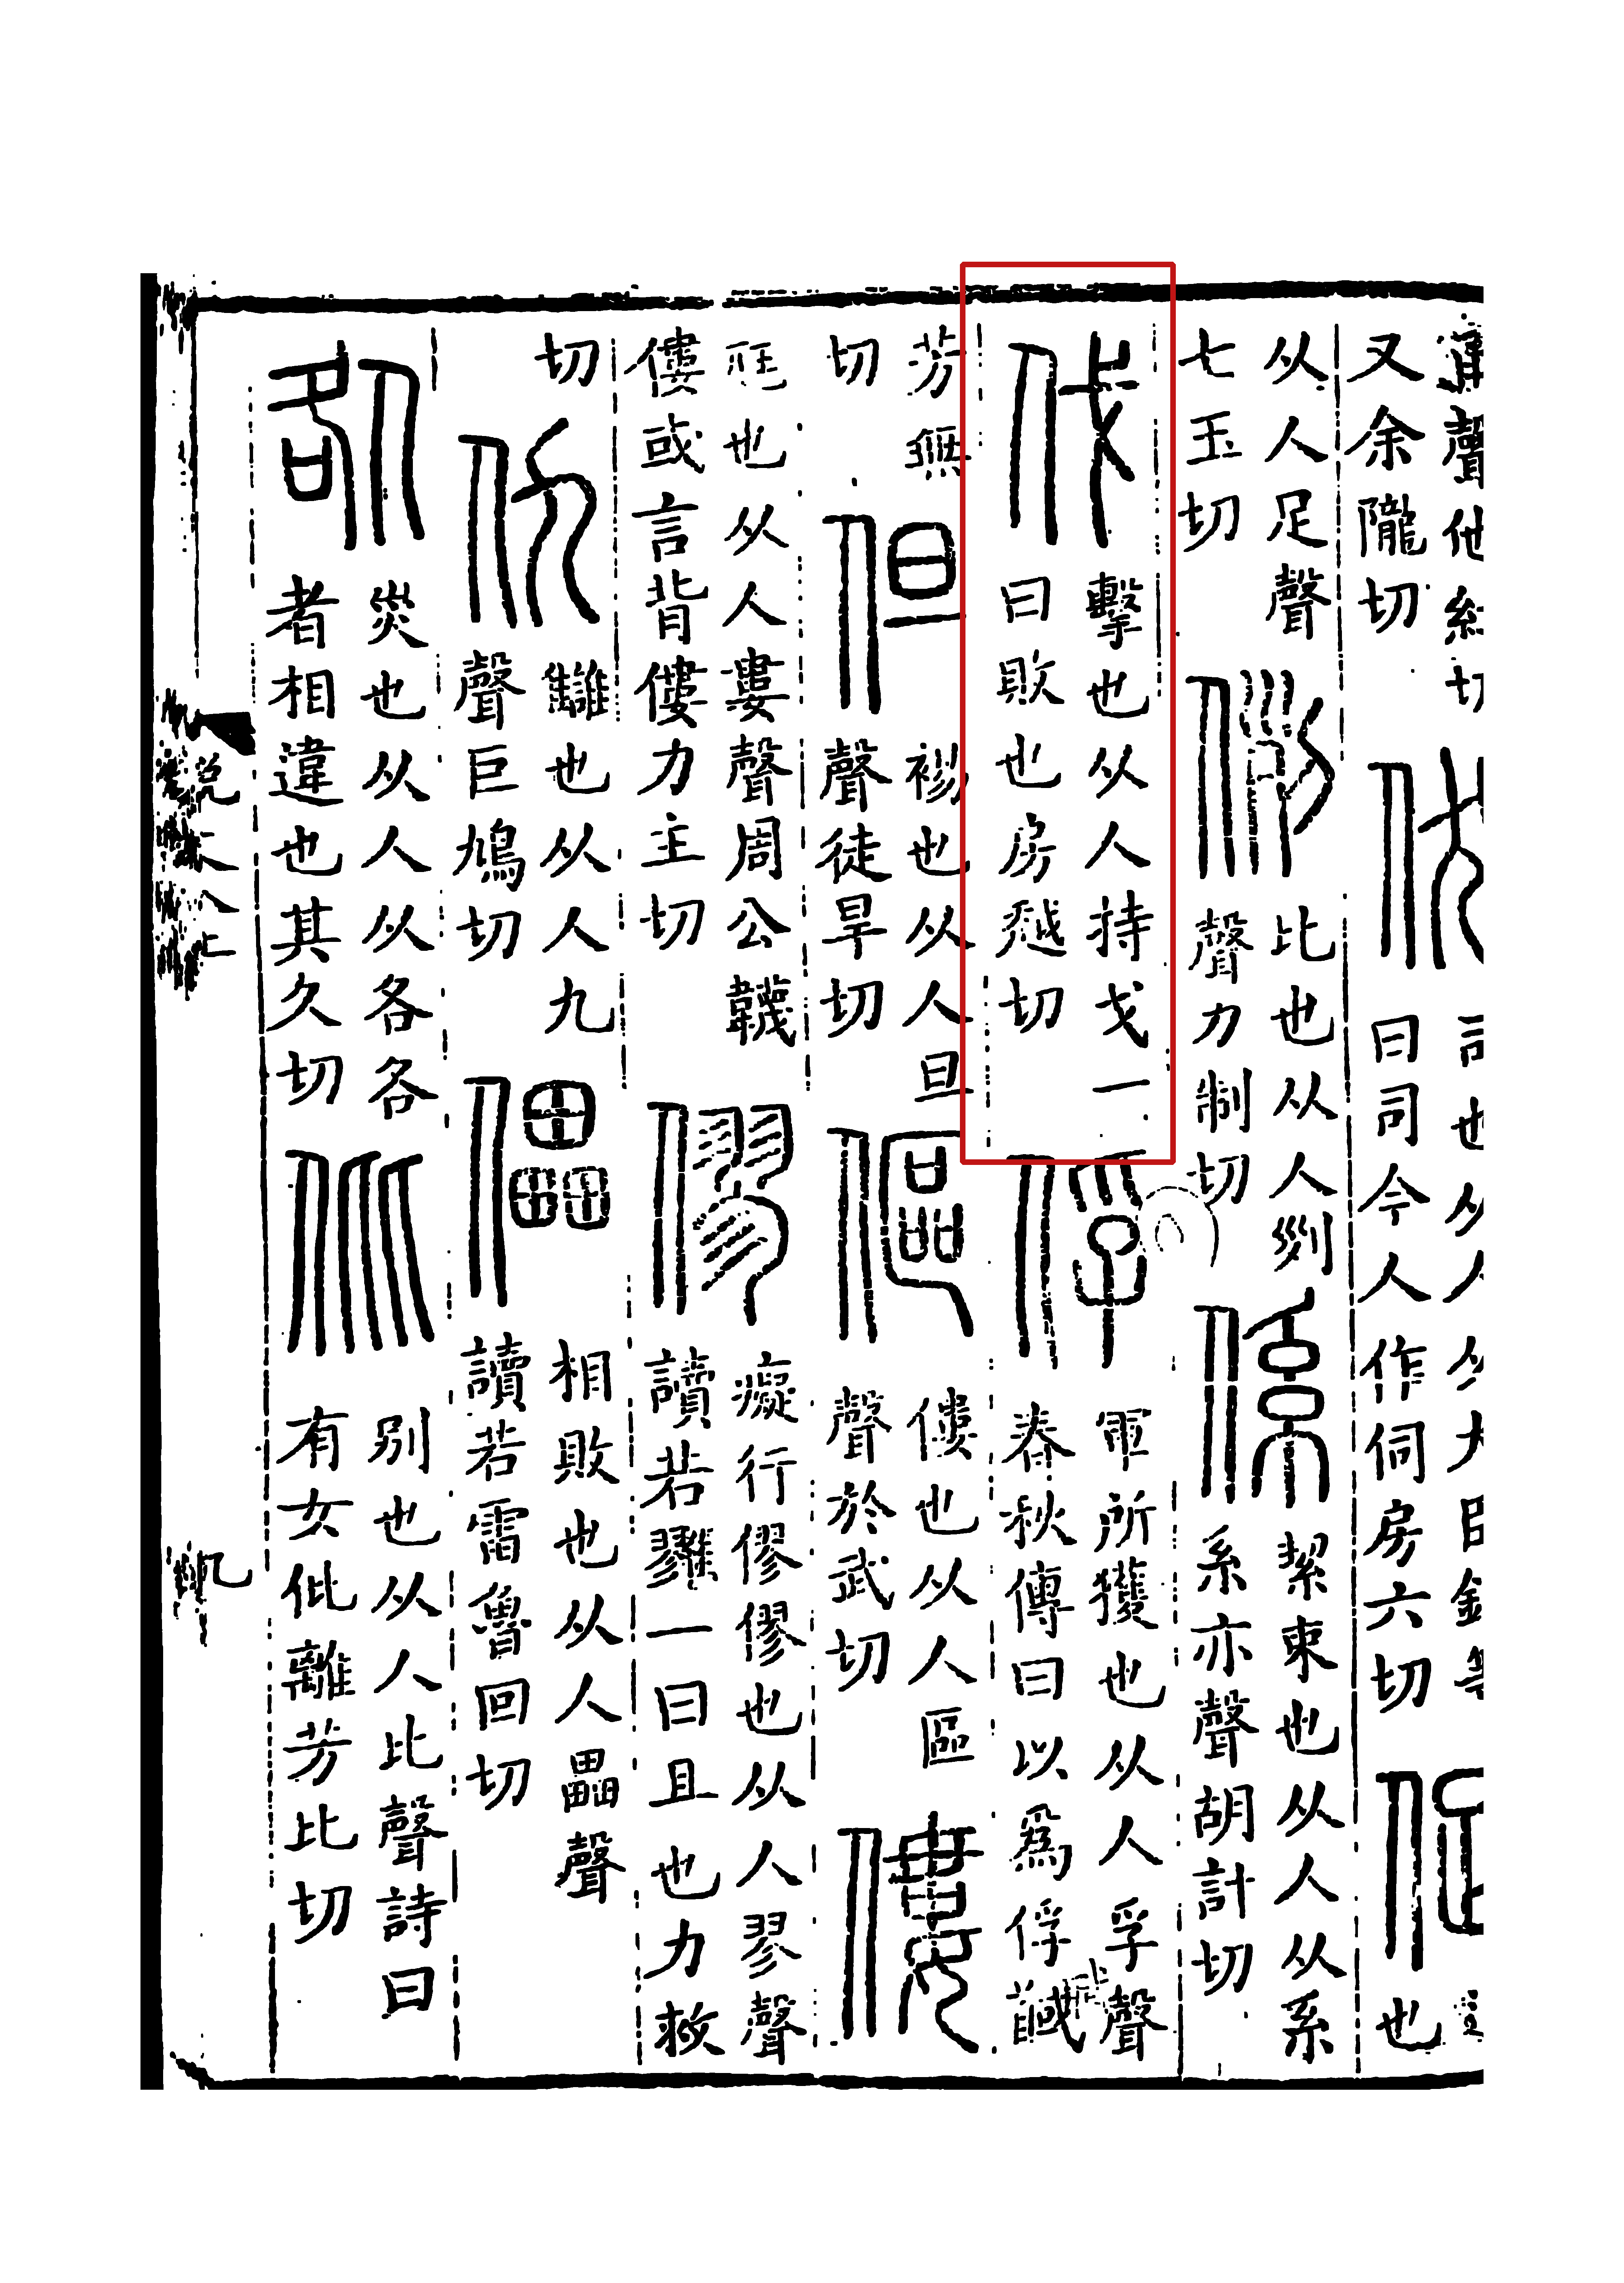 甬聲他紅切
又余隴切
伏
司也从人从犬臣鉉等
曰司今人作伺房六切
促
迫
也
从人足聲
七玉切
例
比也从人𠛱
聲力制切
係
絜束也从人从系
系亦聲胡計切
伐
擊也从人持戈一
曰敗也房越切
俘
軍所獲也从人孚聲
春秋傳曰以爲俘馘
芳無
切
但
裼也从人旦
聲徒旱切
傴
僂也从人區
聲於武切
僂
尫也从人婁聲周公韤
僂或言背僂力主切
僇
癡行僇僇也从人翏聲
讀若雡一曰且也力救
切
仇
讎也从人九
聲巨鳩切
儡
相敗也从人畾聲
讀若雷魯回切
咎
災也从人从各各
者相違也其久切
仳
別也从人比聲詩曰
有女仳離芳比切
說文八上
九